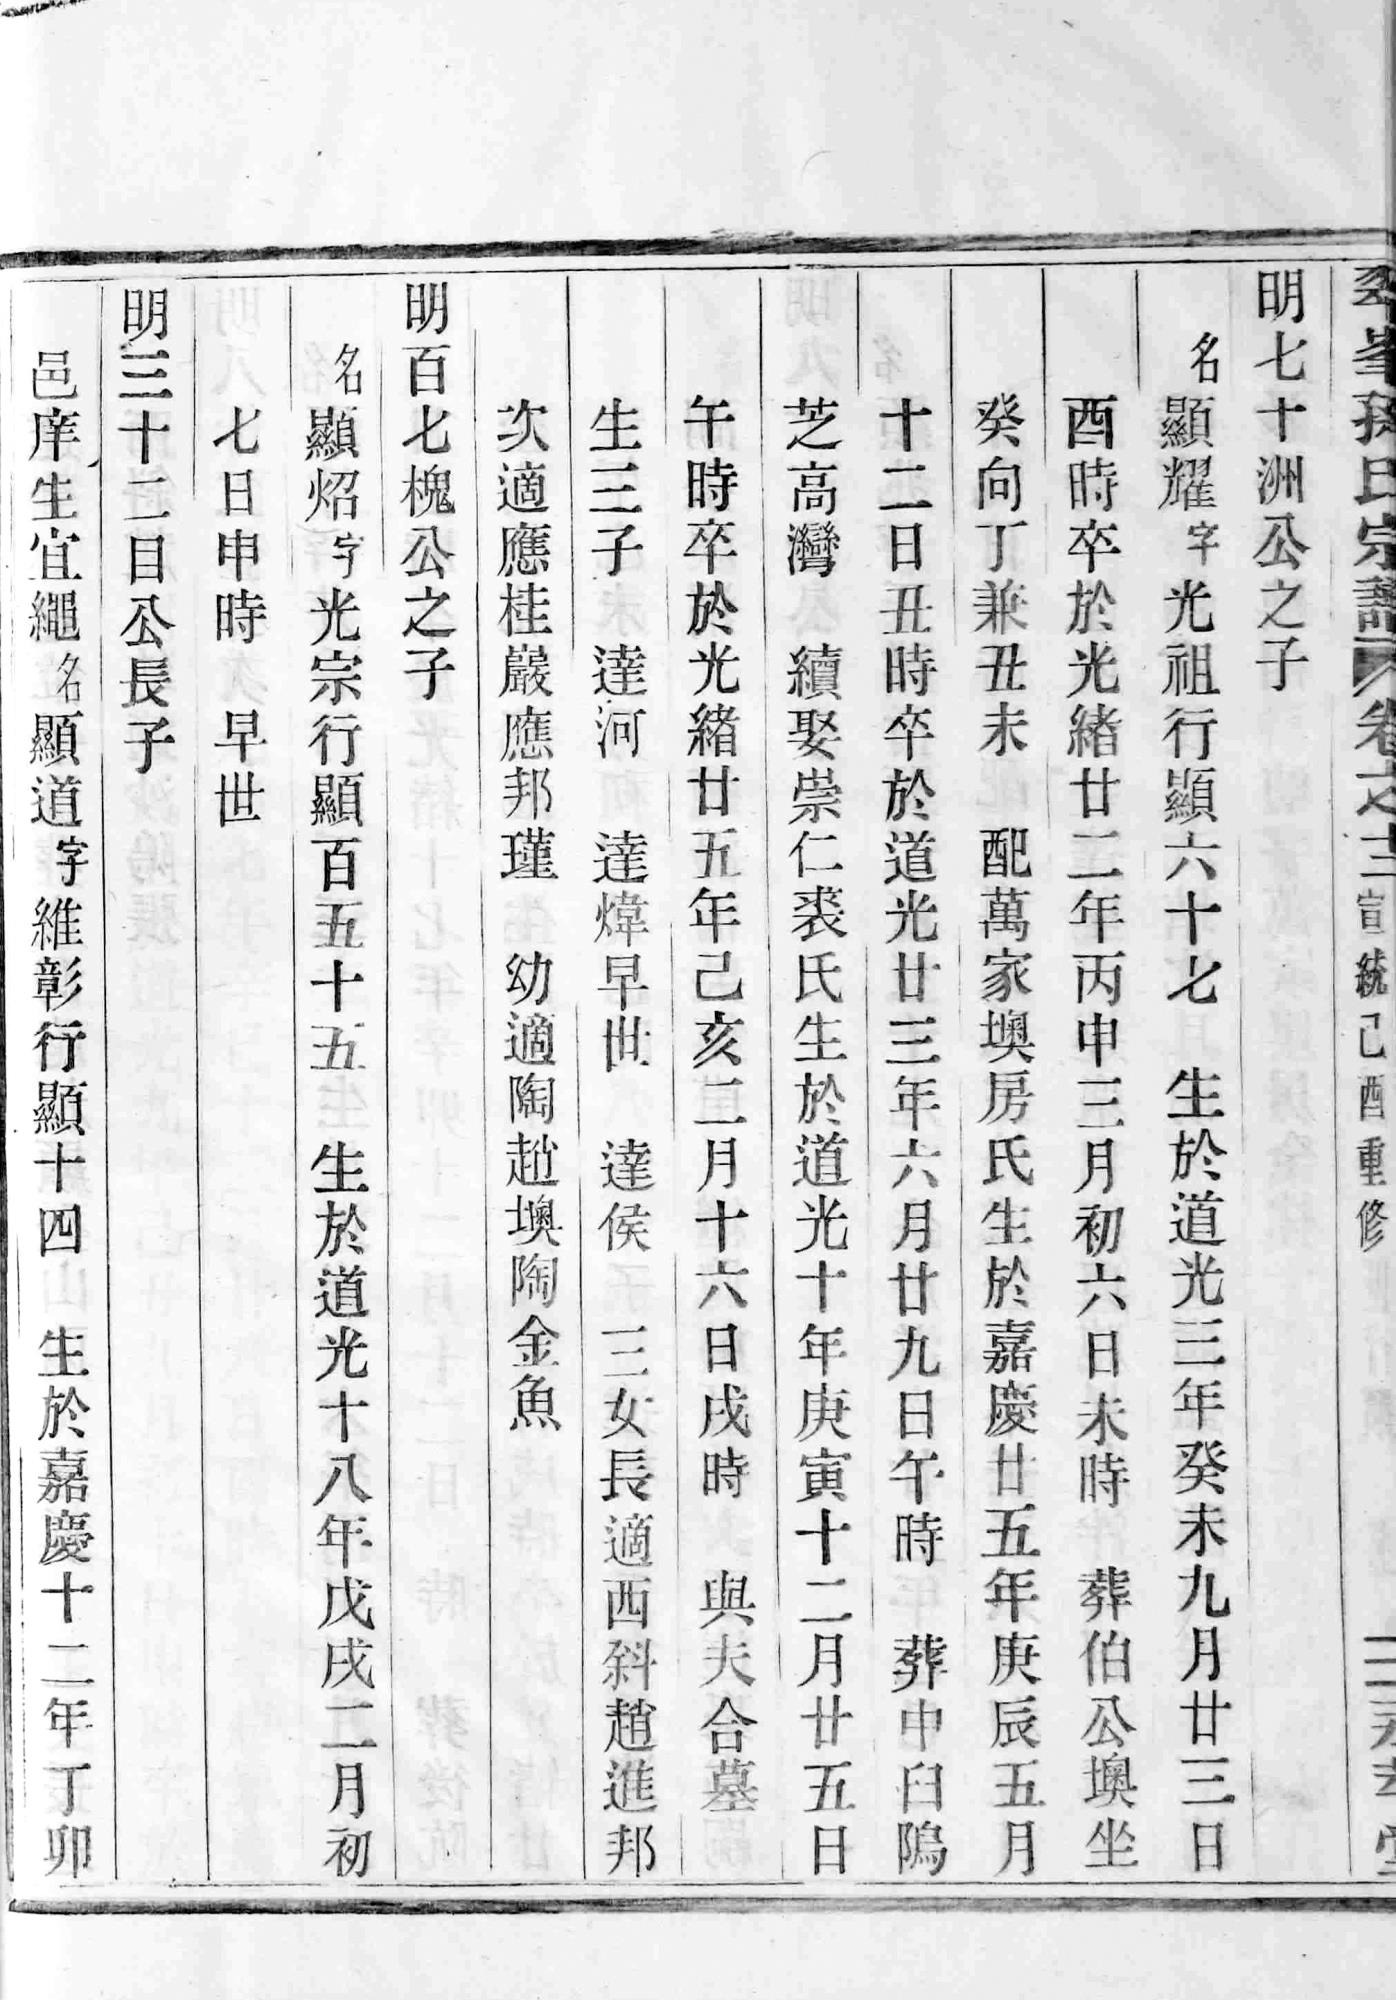 氏宗譜 卷之十三 宣統己酉重修
明七十洲公之子
名顯耀字光祖行顯六十七 生於道光三年癸未九月廿三日
酉時卒於光緒廿二年丙申三月初六日未時 葬伯公墺坐
癸向丁兼丑未 配萬家墺房氏生於嘉慶廿五年庚辰五月
十二日丑時卒於道光廿三年六月廿九日午時 葬中臼隖
芝高灣 續娶崇仁裘氏生於道光十年庚寅十二月廿五日
午時卒於光緒廿五年己亥二月十六日戌時 與夫合墓
生三子 達河 達煒早世 達侯 三女長適西斜趙進邦
次適應桂巖應邦瑾 幼適陶趙墺陶金魚
明百七槐公之子
名顯炤字光宗行顯百五十五 生於道光十八年戊戌二月初
七日申時 早世
明三十二目公長子
邑庠生宜繩名顯道字維彰行顯十四 生於嘉慶十二年丁卯